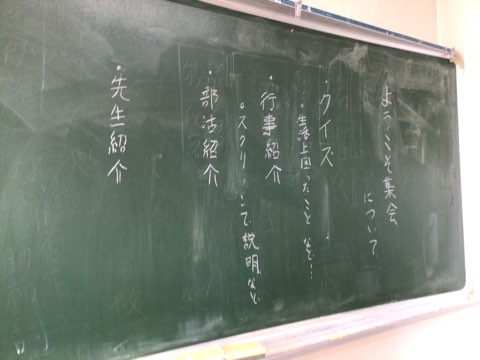 ようこそ集会
について
・クイズ
・生活上困ったこと など…
・行事紹介
。スクリーンで説明など
・部活紹介
・先生紹介